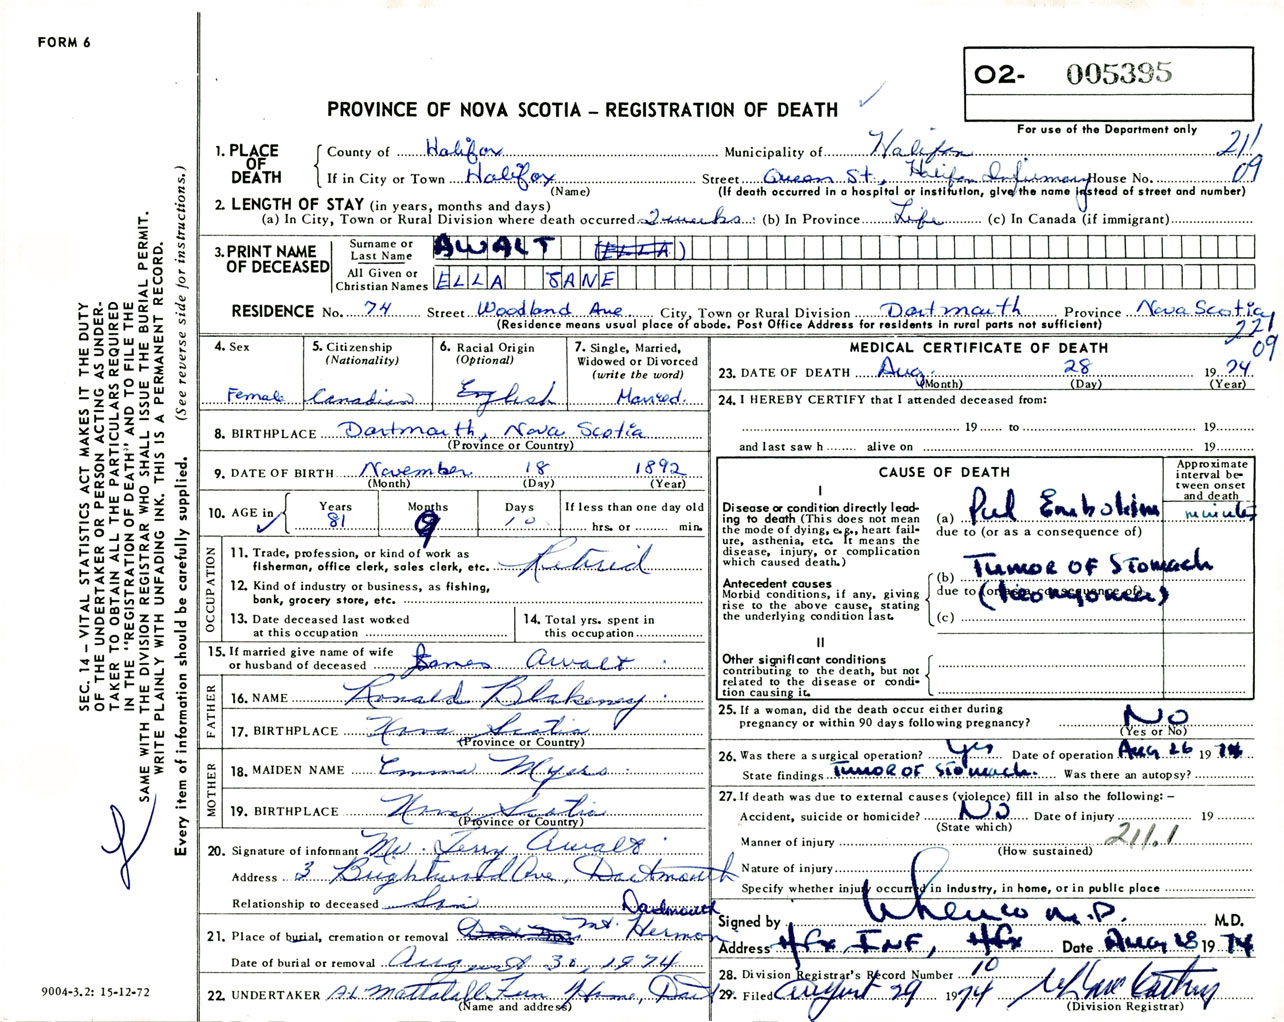 FORM 6
O2- 005395
PROVINCE OF NOVA SCOTIA – REGISTRATION OF DEATH
For use of the Department only
211
09
1. PLACE OF DEATH
County of Halifax Municipality of Halifax
If in City or Town Halifax Street Queen St., Halifax Infirmary House No.
(Name) (If death occurred in a hospital or institution, give the name instead of street and number)
2. LENGTH OF STAY (in years, months and days)
(a) In City, Town or Rural Division where death occurred 2 weeks : (b) In Province Life (c) In Canada (if immigrant)
3. PRINT NAME OF DECEASED
Surname or Last Name AWALT (ELLA)
All Given or Christian Names ELLA JANE
RESIDENCE No. 74 Street Woodland Ave City, Town or Rural Division Dartmouth Province Nova Scotia
(Residence means usual place of abode. Post Office Address for residents in rural parts not sufficient)
221
09
4. Sex Female
5. Citizenship (Nationality) Canadian
6. Racial Origin (Optional) English
7. Single, Married, Widowed or Divorced (write the word) Married.
8. BIRTHPLACE Dartmouth, Nova Scotia
(Province or Country)
9. DATE OF BIRTH November 18 1892
(Month) (Day) (Year)
10. AGE in Years 81 Months 9 Days 10 If less than one day old hrs. or min.
OCCUPATION
11. Trade, profession, or kind of work as fisherman, office clerk, sales clerk, etc. Retired
12. Kind of industry or business, as fishing, bank, grocery store, etc.
13. Date deceased last worked at this occupation
14. Total yrs. spent in this occupation
15. If married give name of wife or husband of deceased James Awalt
FATHER
16. NAME Ronald Blakeney
17. BIRTHPLACE Nova Scotia
(Province or Country)
MOTHER
18. MAIDEN NAME Emma Myers
19. BIRTHPLACE Nova Scotia
(Province or Country)
20. Signature of informant Mr. Terry Awalt
Address 3 Brightwood Ave, Dartmouth
Relationship to deceased Son
21. Place of burial, cremation or removal Mt. Hermon Dartmouth
Date of burial or removal August 30, 1974
22. UNDERTAKER Mattatall Fun Home, Dart
(Name and address)
MEDICAL CERTIFICATE OF DEATH
23. DATE OF DEATH Aug. 28 19 74
(Month) (Day) (Year)
24. I HEREBY CERTIFY that I attended deceased from:
19 to 19
and last saw h alive on 19
CAUSE OF DEATH
Approximate interval between onset and death
I
Disease or condition directly leading to death (This does not mean the mode of dying, e.g., heart failure, asthenia, etc. It means the disease, injury, or complication which caused death.)
(a) Pul Embolism minutes
due to (or as a consequence of)
Antecedent causes
Morbid conditions, if any, giving rise to the above cause, stating the underlying condition last.
(b) TUMOR OF STOMACH
due to (or as a consequence of)
(leiomyoma)
(c)
II
Other significant conditions contributing to the death, but not related to the disease or condition causing it.
25. If a woman, did the death occur either during pregnancy or within 90 days following pregnancy? NO
(Yes or No)
26. Was there a surgical operation? Yes Date of operation Aug 26 19 74
State findings TUMOR OF Stomach. Was there an autopsy?
27. If death was due to external causes (violence) fill in also the following: –
Accident, suicide or homicide? NO Date of injury 19
(State which)
Manner of injury 211.1
(How sustained)
Nature of injury
Specify whether injury occurred in industry, in home, or in public place
Signed by M.D. M.D.
Address Hfx INF, Hfx Date Aug 28 19 74
28. Division Registrar's Record Number 10
29. Filed August 29 1974
(Division Registrar)
SEC. 14 – VITAL STATISTICS ACT MAKES IT THE DUTY
OF THE UNDERTAKER OR PERSON ACTING AS UNDER-
TAKER TO OBTAIN ALL THE PARTICULARS REQUIRED
IN THE "REGISTRATION OF DEATH" AND TO FILE THE
SAME WITH THE DIVISION REGISTRAR WHO SHALL ISSUE THE BURIAL PERMIT.
WRITE PLAINLY WITH UNFADING INK. THIS IS A PERMANENT RECORD.
Every item of information should be carefully supplied. (See reverse side for instructions.)
9004-3.2: 15-12-72